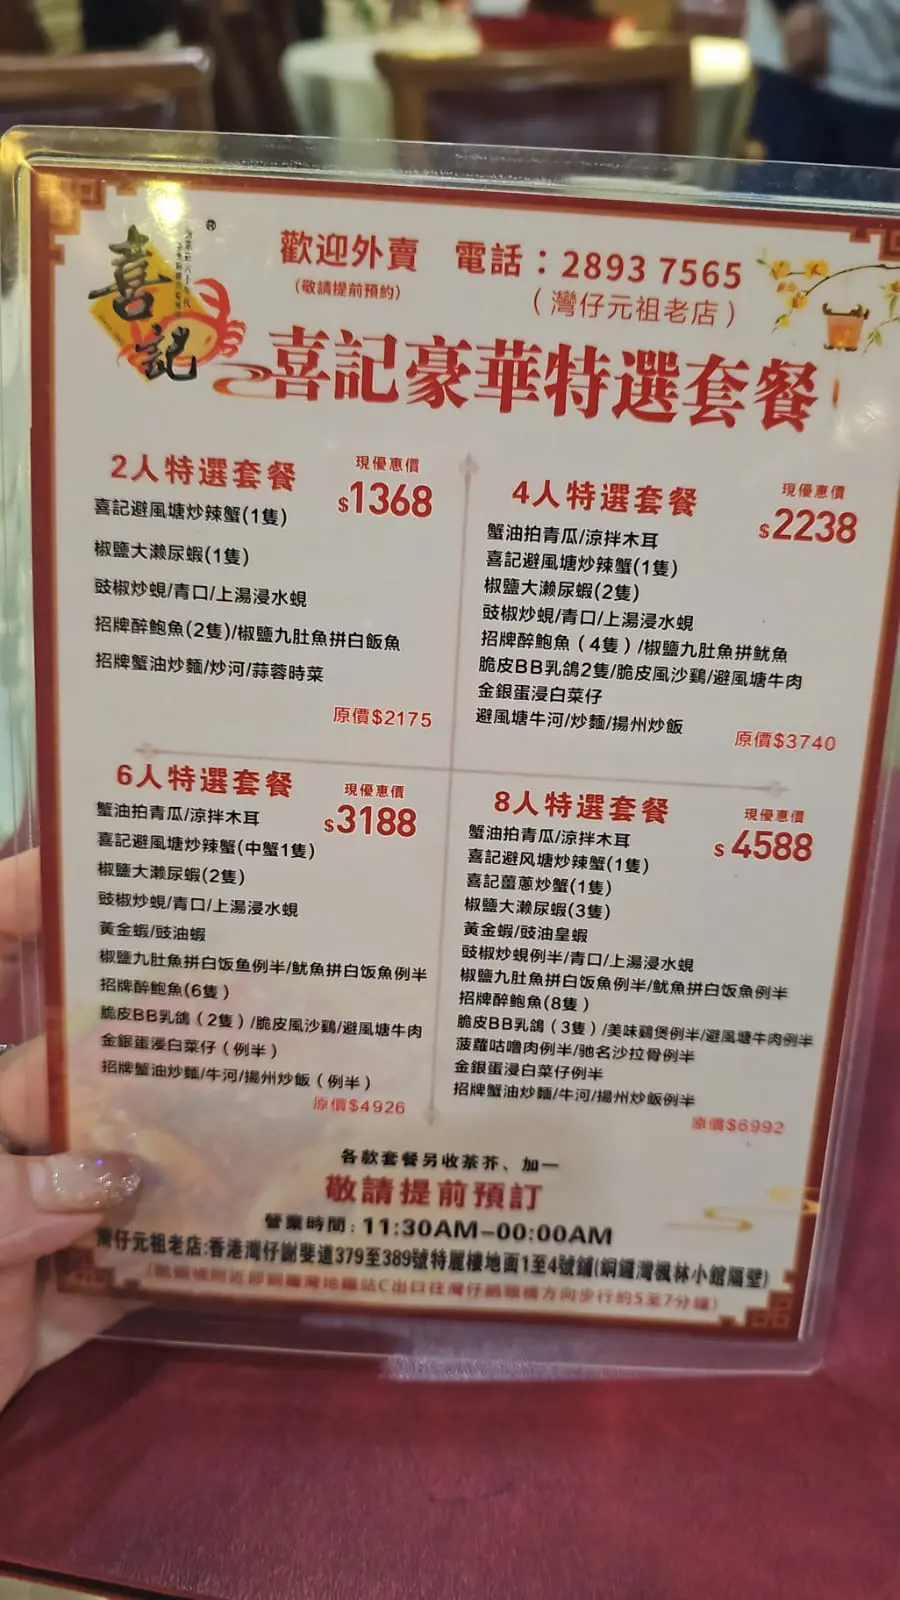 喜記
®
歡迎外賣 電話：2893 7565
(敬請提前預約)
(灣仔元祖老店)
喜記豪華特選套餐
2人特選套餐
現優惠價
$1368
喜記避風塘炒辣蟹(1隻)
椒鹽大瀨尿蝦(1隻)
豉椒炒蜆/青口/上湯浸水蜆
招牌醉鮑魚(2隻)/椒鹽九肚魚拼白飯魚
招牌蟹油炒麵/炒河/蒜蓉時菜
原價$2175
4人特選套餐
現優惠價
$2238
蟹油拍青瓜/涼拌木耳
喜記避風塘炒辣蟹(1隻)
椒鹽大瀨尿蝦(2隻)
豉椒炒蜆/青口/上湯浸水蜆
招牌醉鮑魚(4隻)/椒鹽九肚魚拼魷魚
脆皮BB乳鴿2隻/脆皮風沙鷄/避風塘牛肉
金銀蛋浸白菜仔
避風塘牛河/炒麵/揚州炒飯
原價$3740
6人特選套餐
現優惠價
$3188
蟹油拍青瓜/涼拌木耳
喜記避風塘炒辣蟹(中蟹1隻)
椒鹽大瀨尿蝦(2隻)
豉椒炒蜆/青口/上湯浸水蜆
黃金蝦/豉油蝦
椒鹽九肚魚拼白饭鱼例半/魷魚拼白饭魚例半
招牌醉鮑魚(6隻)
脆皮BB乳鴿(2隻)/脆皮風沙鷄/避風塘牛肉
金銀蛋浸白菜仔(例半)
招牌蟹油炒麵/牛河/揚州炒飯(例半)
原價$4926
8人特選套餐
現優惠價
$4588
蟹油拍青瓜/涼拌木耳
喜記避风塘炒辣蟹(1隻)
喜記薑蔥炒蟹(1隻)
椒鹽大瀨尿蝦(3隻)
黃金蝦/豉油皇蝦
豉椒炒蜆例半/青口/上湯浸水蜆
椒鹽九肚魚拼白饭魚例半/魷魚拼白饭魚例半
招牌醉鮑魚(8隻)
脆皮BB乳鴿(3隻)/美味鷄煲例半/避風塘牛肉例半
菠蘿咕嚕肉例半/驰名沙拉骨例半
金銀蛋浸白菜仔例半
招牌蟹油炒麵/牛河/揚州炒飯例半
原價$6992
各款套餐另收茶芥、加一
敬請提前預訂
營業時間：11:30AM-00:00AM
灣仔元祖老店:香港灣仔謝斐道379至389號特麗樓地面1至4號鋪(銅鑼灣楓林小館隔壁)
(鵝頸橋附近即銅鑼灣地鐵站C出口往灣仔鵝頸橋方向步行約5至7分鐘)